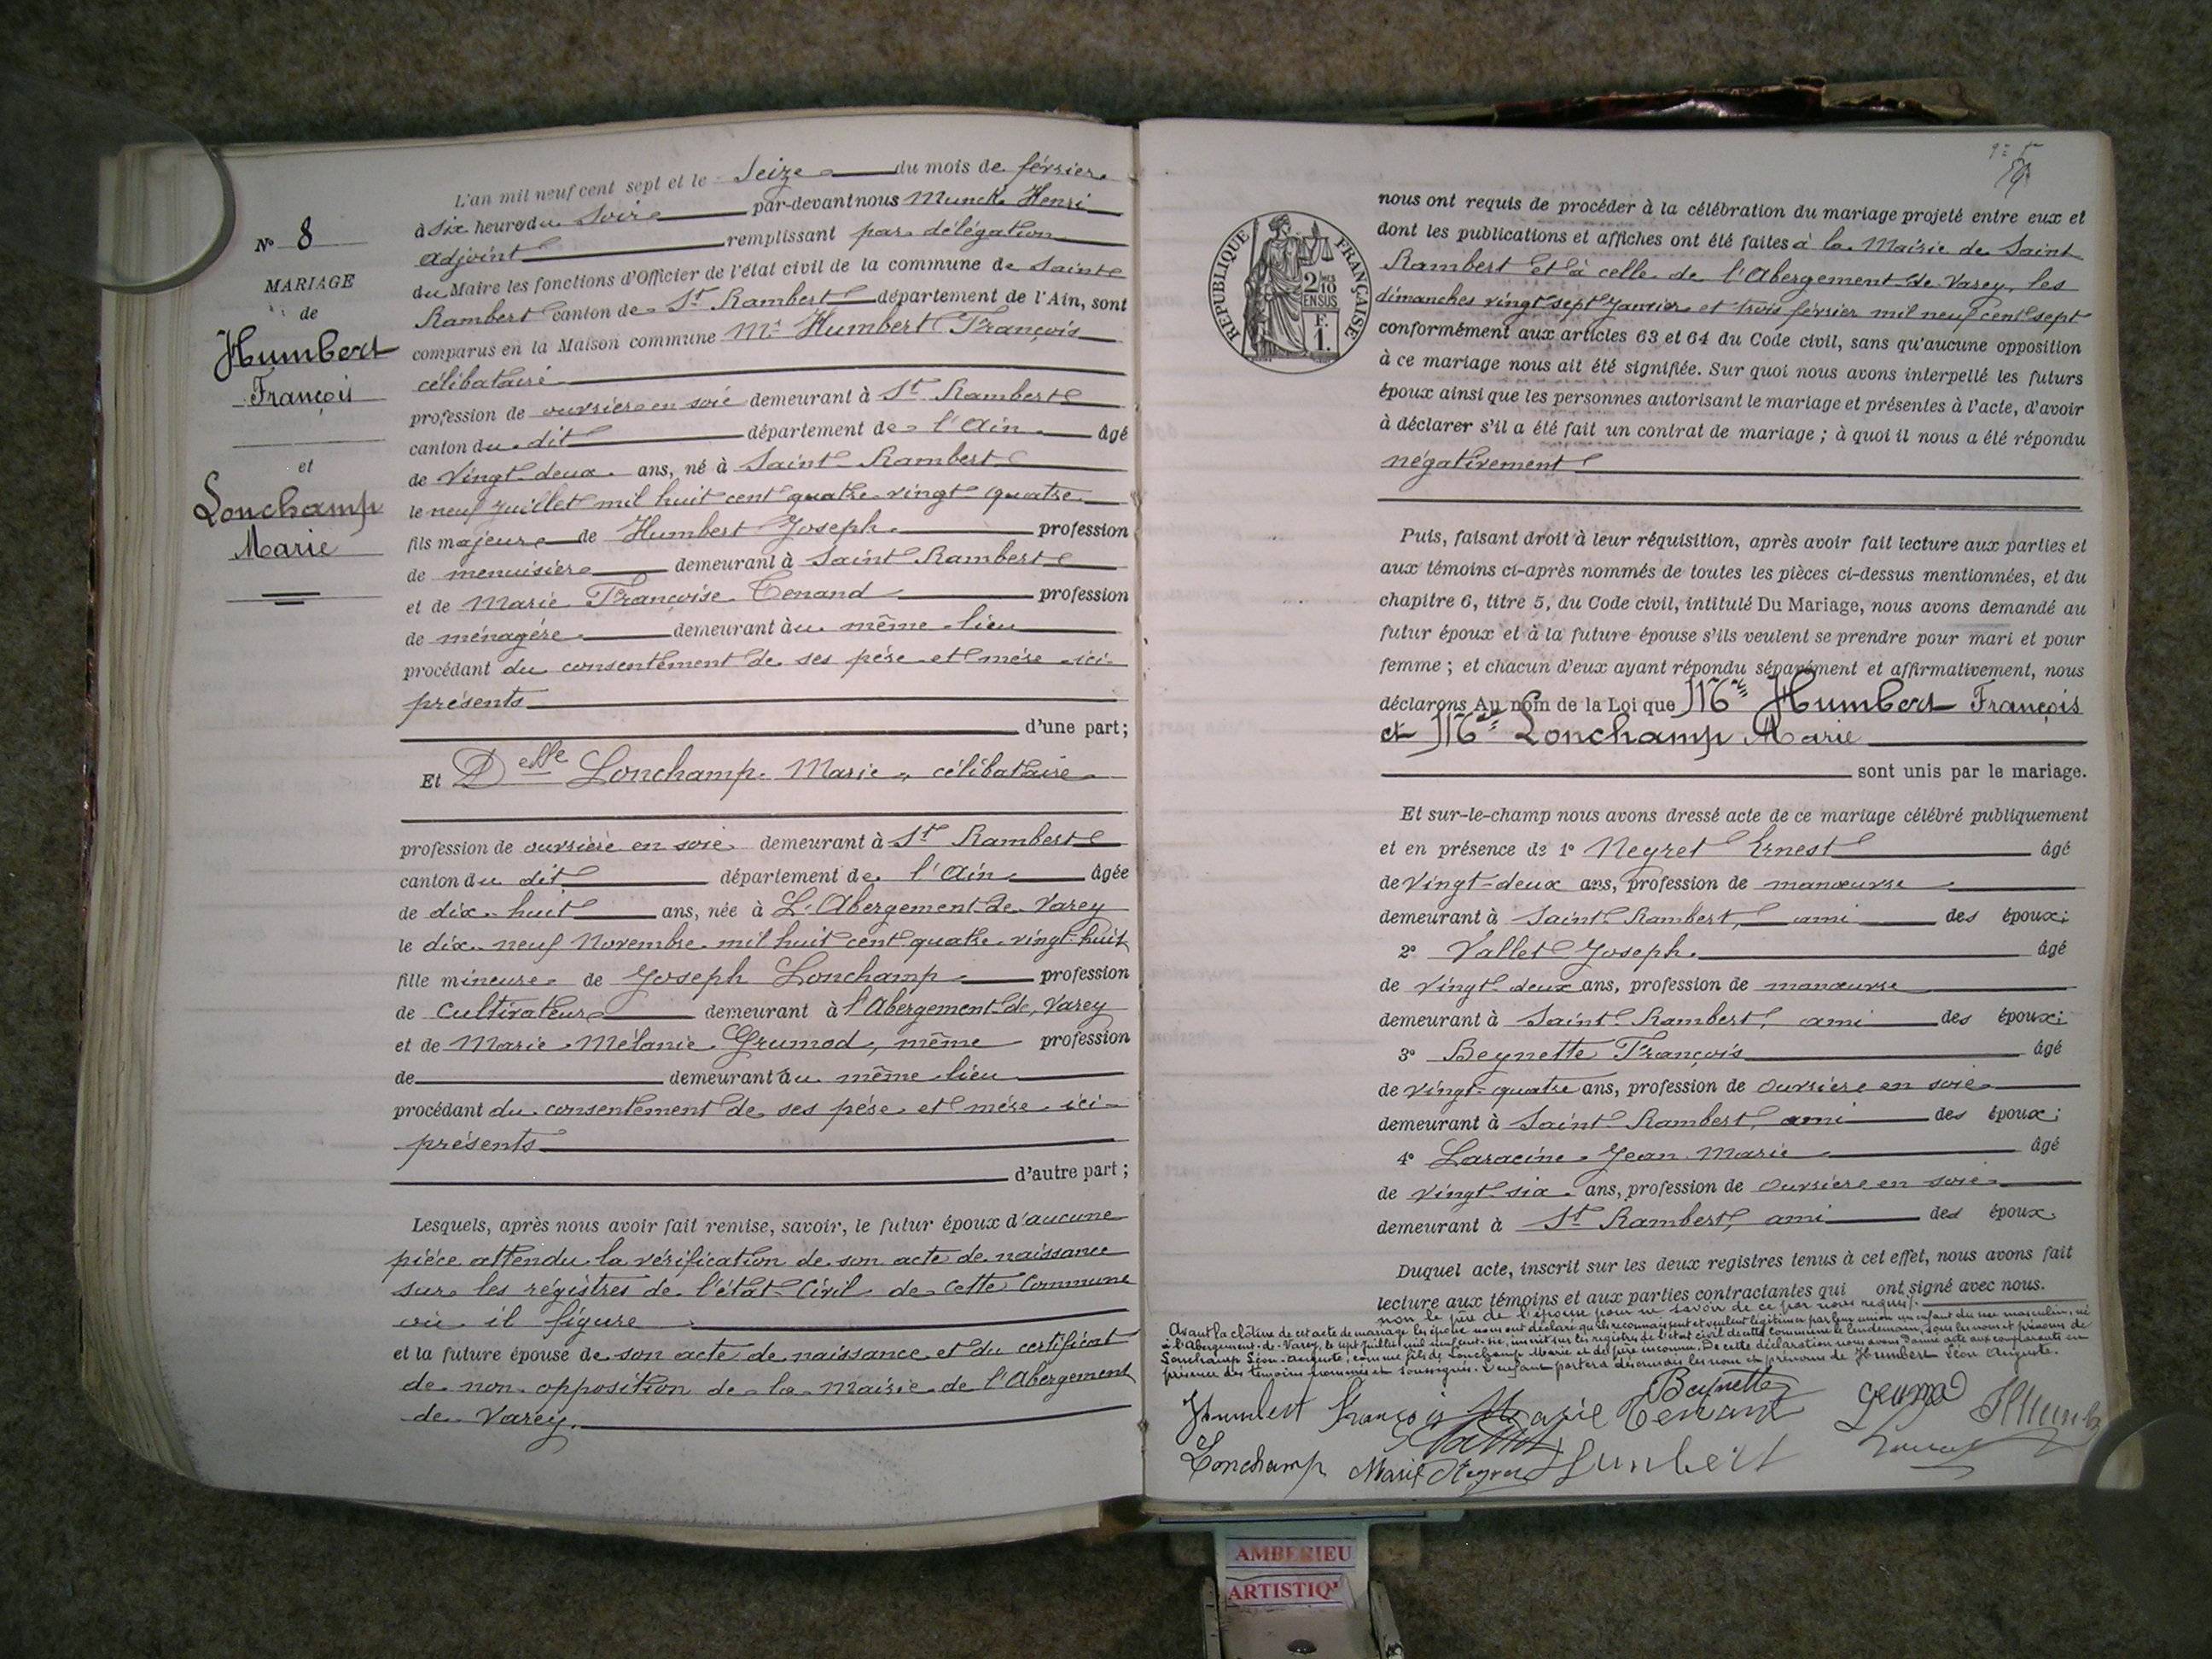 N° 8
MARIAGE
de
Humbert
François
et
Lonchamp
Marie
L'an mil neuf cent sept et le Seize du mois de février
à Six heures du Soir par-devant nous Munck Henri
adjoint remplissant par délégation
du Maire les fonctions d'Officier de l'état civil de la commune de Saint
Rambert canton de St Rambert département de l'Ain, sont
comparus en la Maison commune Mr Humbert François
célibataire
profession de ouvrier en soie demeurant à St Rambert
canton du dit département de l'Ain âgé
de Vingt-deux ans, né à Saint-Rambert
le neuf Juillet mil huit cent quatre-vingt-quatre
fils majeur de Humbert Joseph profession
de menuisier demeurant à Saint Rambert
et de Marie Françoise Tenand profession
de ménagère demeurant au même lieu
procédant du consentement de ses père et mère ici
présents
d'une part;
Et Delle Lonchamp Marie, célibataire
profession de ouvrière en soie demeurant à St Rambert
canton du dit département de l'Ain âgée
de dix-huit ans, née à L'Abergement-de-Varey
le dix-neuf Novembre mil huit cent quatre-vingt-huit
fille mineure de Joseph Lonchamp profession
de Cultivateur demeurant à l'Abergement-de-Varey
et de Marie Mélanie Grumod, même profession
de demeurant au même lieu
procédant du consentement de ses père et mère ici-
présents
d'autre part;
Lesquels, après nous avoir fait remise, savoir, le futur époux d'aucune
pièce attendu la vérification de son acte de naissance
sur les régistres de l'état-Civil de cette Commune
où il figure
et la future épouse de son acte de naissance et du certificat
de non opposition de la Mairie de l'Abergement
de Varey.
RÉPUBLIQUE FRANÇAISE
2/10 EN SUS
F.
1.
nous ont requis de procéder à la célébration du mariage projeté entre eux et
dont les publications et affiches ont été faites à la Mairie de Saint
Rambert et à celle de l'Abergement-de-Varey, les
dimanches vingt sept Janvier et trois février mil neuf cent sept
conformément aux articles 63 et 64 du Code civil, sans qu'aucune opposition
à ce mariage nous ait été signifiée. Sur quoi nous avons interpellé les futurs
époux ainsi que les personnes autorisant le mariage et présentes à l'acte, d'avoir
à déclarer s'il a été fait un contrat de mariage; à quoi il nous a été répondu
négativement
Puis, faisant droit à leur réquisition, après avoir fait lecture aux parties et
aux témoins ci-après nommés de toutes les pièces ci-dessus mentionnées, et du
chapitre 6, titre 5, du Code civil, intitulé Du Mariage, nous avons demandé au
futur époux et à la future épouse s'ils veulent se prendre pour mari et pour
femme; et chacun d'eux ayant répondu séparément et affirmativement, nous
déclarons Au nom de la Loi que Mr Humbert François
et Melle Lonchamp Marie
sont unis par le mariage.
Et sur-le-champ nous avons dressé acte de ce mariage célébré publiquement
et en présence de 1° Neyret Ernest âgé
de Vingt-deux ans, profession de manœuvre
demeurant à Saint Rambert, ami des époux;
2° Vallet Joseph âgé
de Vingt-deux ans, profession de manœuvre
demeurant à Saint-Rambert, ami des époux;
3° Beynette François âgé
de Vingt-quatre ans, profession de Ouvrier en soie
demeurant à Saint-Rambert, ami des époux;
4° Laracine Jean Marie âgé
de Vingt-six ans, profession de Ouvrier en soie
demeurant à St Rambert, ami des époux.
Duquel acte, inscrit sur les deux registres tenus à cet effet, nous avons fait
lecture aux témoins et aux parties contractantes qui ont signé avec nous.
non le père de l'épouse pour ne savoir de ce par nous requis.
Avant la clôture de cet acte de mariage les époux nous ont déclaré qu'ils reconnaissent et veulent légitimer par leur union un enfant du sexe masculin, né
à l'Abergement-de-Varey, le sept Juillet mil neuf cent-six, inscrit sur les registres de l'état civil de cette Commune le lendemain, sous les nom et prénoms de
Lonchamp Léon-Auguste, comme fils de Lonchamp Marie et de père inconnu. De cette déclaration nous avons donné acte aux comparants en
présence des témoins nommés et soussignés. L'enfant portera désormais les nom et prénoms de Humbert Léon Auguste.
Humbert François Marie Tenant Beynette Grumod
Lonchamp Marie Neyret Vallet Humbert
AMBERIEU
ARTISTIQ